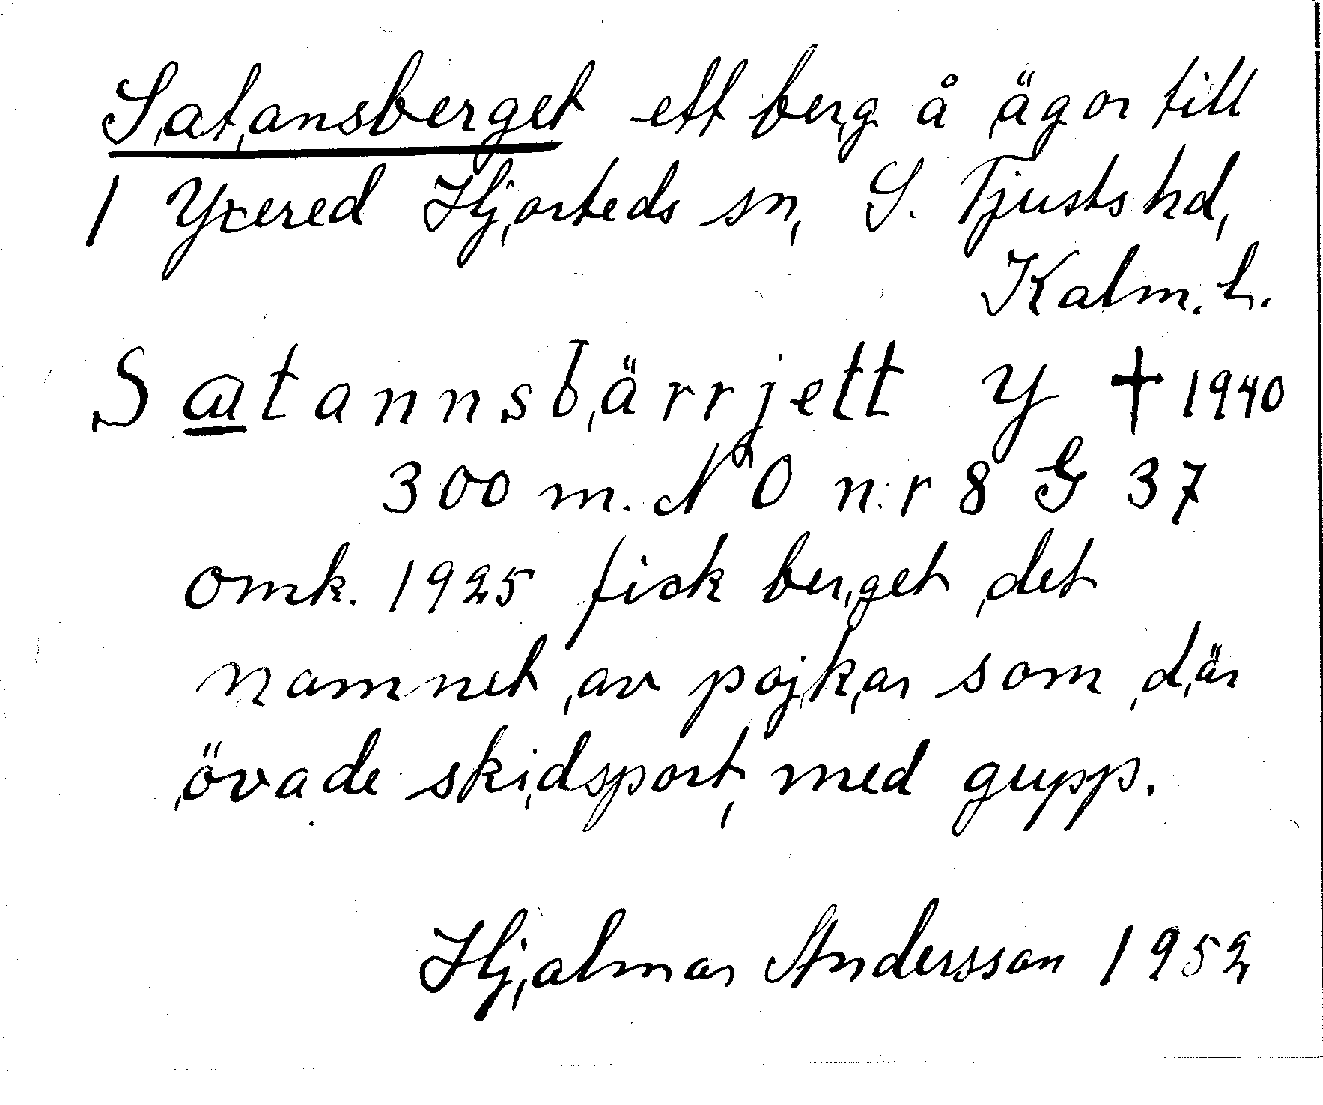 Satansberget ett berg å ägor till
1 Yxered Hjorteds sn, S. Tjusts hd,
Kalm. l.
Satannsbärrjett y † 1940
300 m. N O n:r 8 G 37
omk. 1925 fick berget det
namnet av pojkar som där
övade skidsport, med gupp.
Hjalmar Andersson 1952